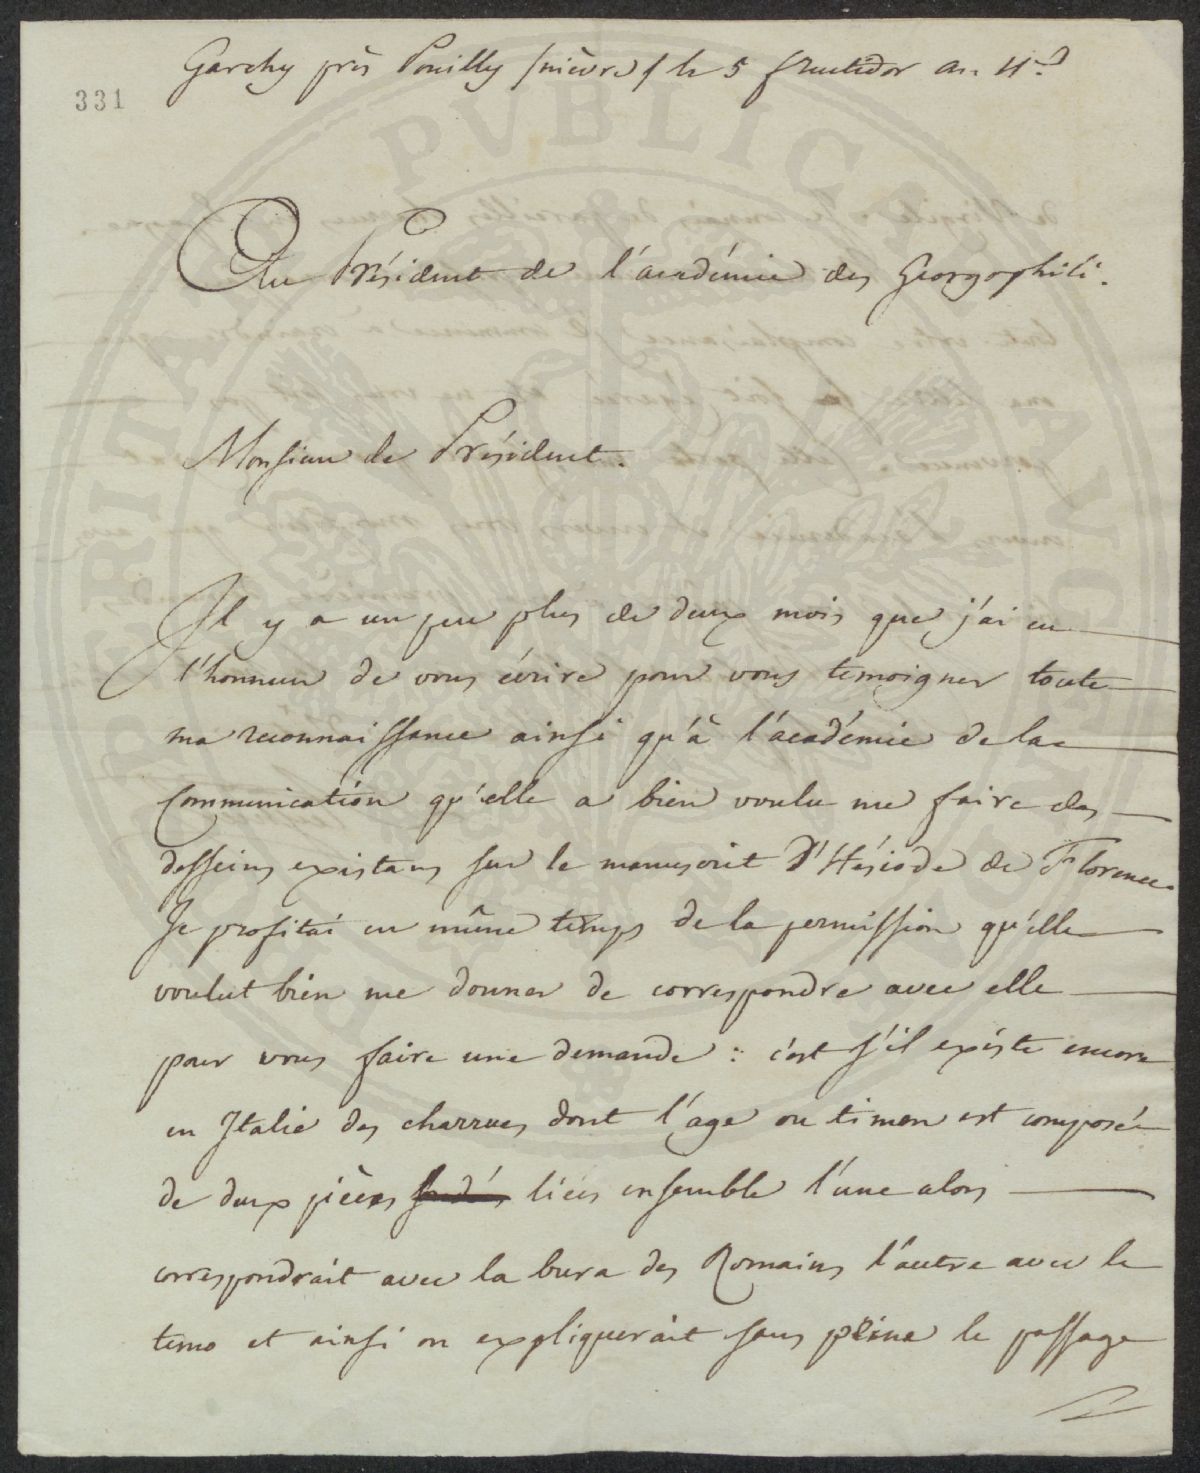 Garchy près Pouilly (nièvre) le 5 fructidor an 11.
331
Au Président de l'académie des Georgophili.
Monsieur le Président.
Il y a un peu plus de deux mois que j'ai eu
l'honneur de vous écrire pour vous temoigner toute
ma reconnaissance ainsi qu'à l'académie de la
communication qu'elle a bien voulu me faire des
desseins existans sur le manuscrit d'Hésiode de Florence.
Je profitai en même temps de la permission qu'elle
voulut bien me donner de correspondre avec elle
pour vous faire une demande : c'est s'il existe encore
en Italie des charrues dont l'age ou timon est composée
de deux pièces liées ensemble l'une alors
correspondrait avec la bura des Romains l'autre avec le
temo et ainsi on expliquerait sans peine le passage